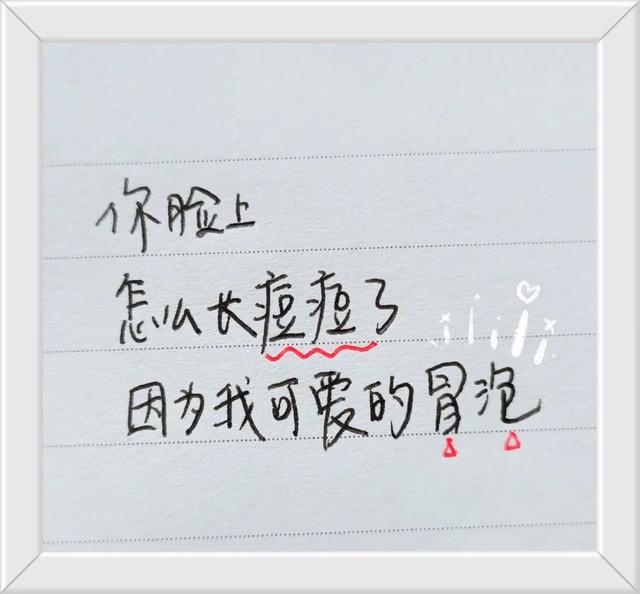 你脸上
怎么长痘痘了
因为我可爱的冒泡